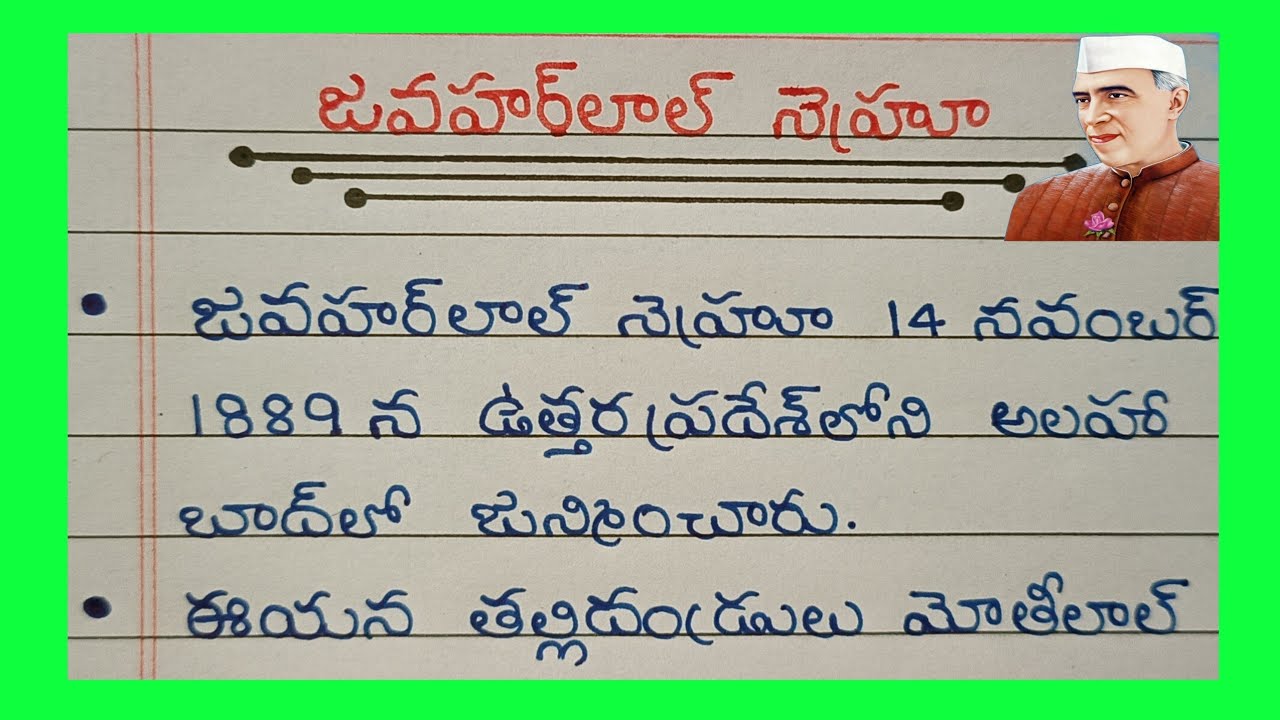 జవహర్‌లాల్ నెహ్రూ
జవహర్‌లాల్ నెహ్రూ 14 నవంబర్
1889 న ఉత్తర ప్రదేశ్‌లోని అలహా
బాద్‌లో జన్మించారు.
ఈయన తల్లిదండ్రులు మోతీలాల్